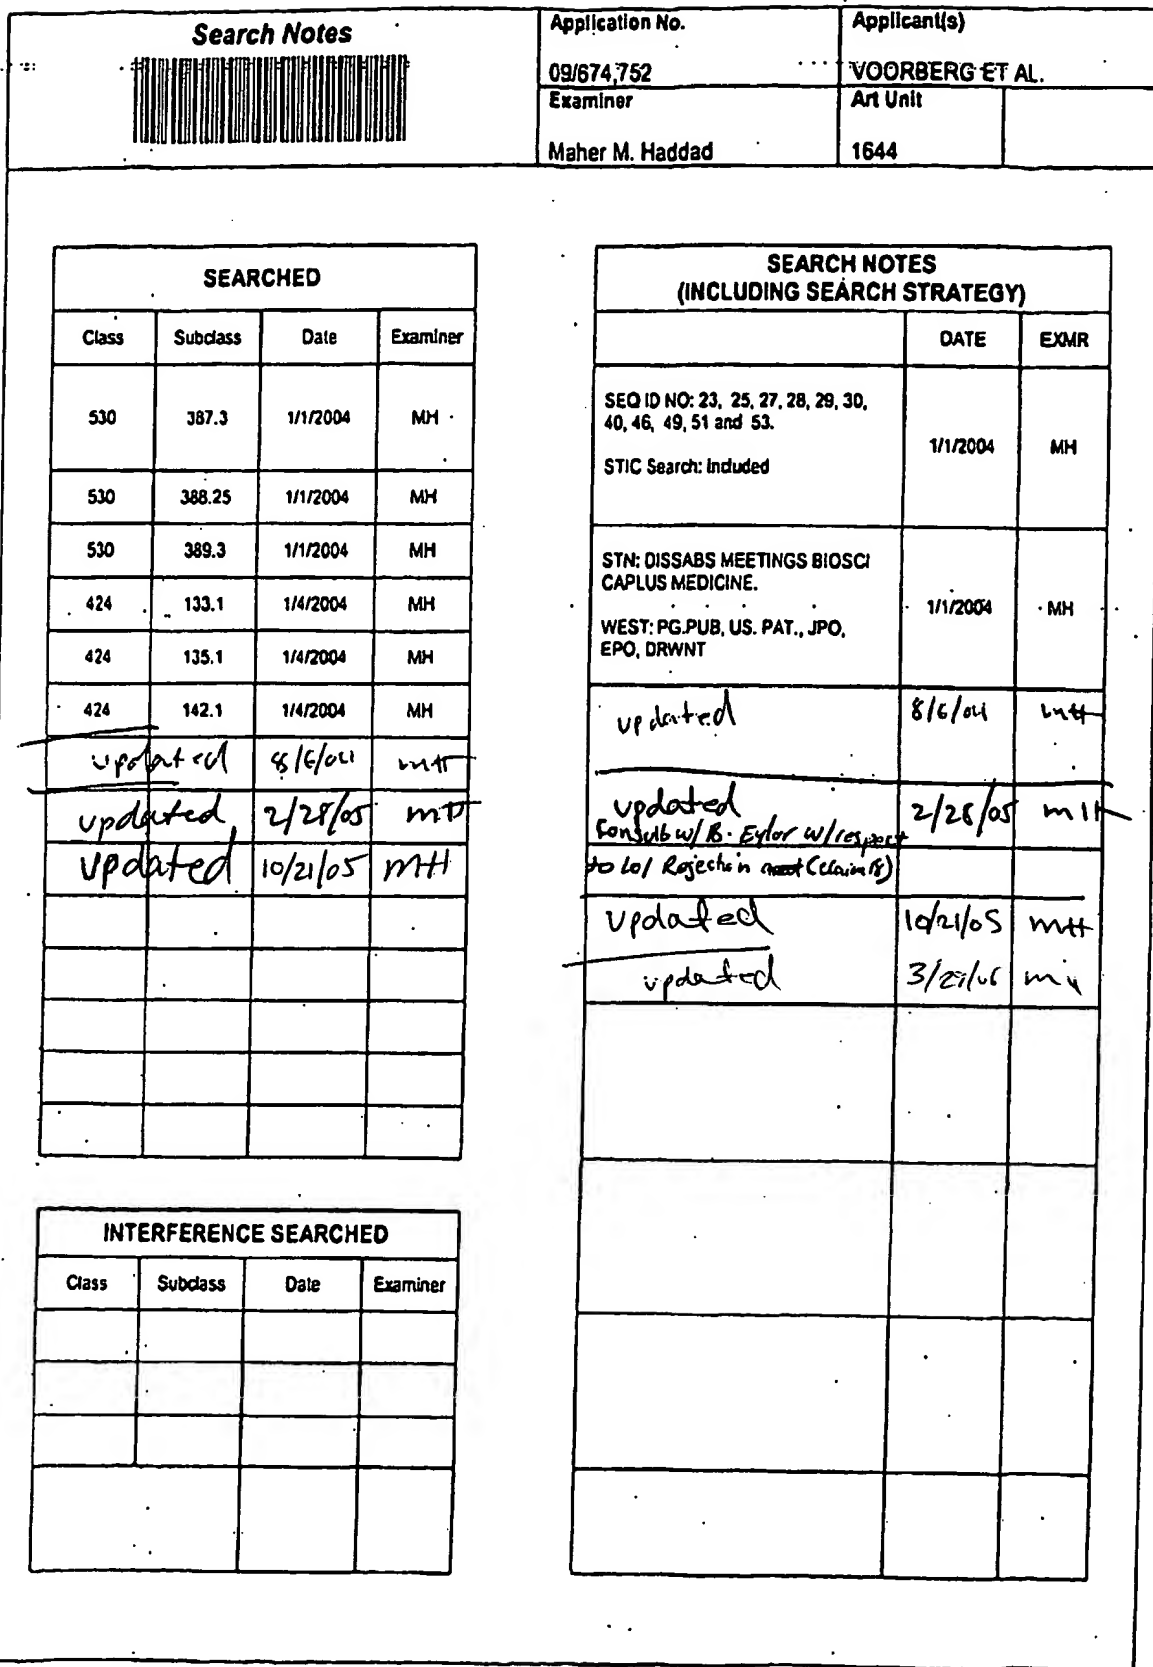 Search Notes
Application No.
Applicant(s)
09/674,752
VOORBERG ET AL.
Examiner
Art Unit
Maher M. Haddad
1644
SEARCHED
Class Subclass Date Examiner
530 387.3 1/1/2004 MH
530 388.25 1/1/2004 MH
530 389.3 1/1/2004 MH
424 133.1 1/4/2004 MH
424 135.1 1/4/2004 MH
424 142.1 1/4/2004 MH
updated 8/6/04 MH
updated 2/28/05 MH
updated 10/21/05 MH
SEARCH NOTES
(INCLUDING SEARCH STRATEGY)
DATE EXMR
SEQ ID NO: 23, 25, 27, 28, 29, 30,
40, 46, 49, 51 and 53.
STIC Search: included
1/1/2004 MH
STN: DISSABS MEETINGS BIOSCI
CAPLUS MEDICINE.
WEST: PG.PUB, US. PAT., JPO,
EPO, DRWNT
1/1/2004 MH
updated 8/6/04 MH
updated 2/28/05 MH
w/ B. w/ respect
to 101 Rejection (claim 18)
updated 10/21/05 MH
updated MH
INTERFERENCE SEARCHED
Class Subclass Date Examiner